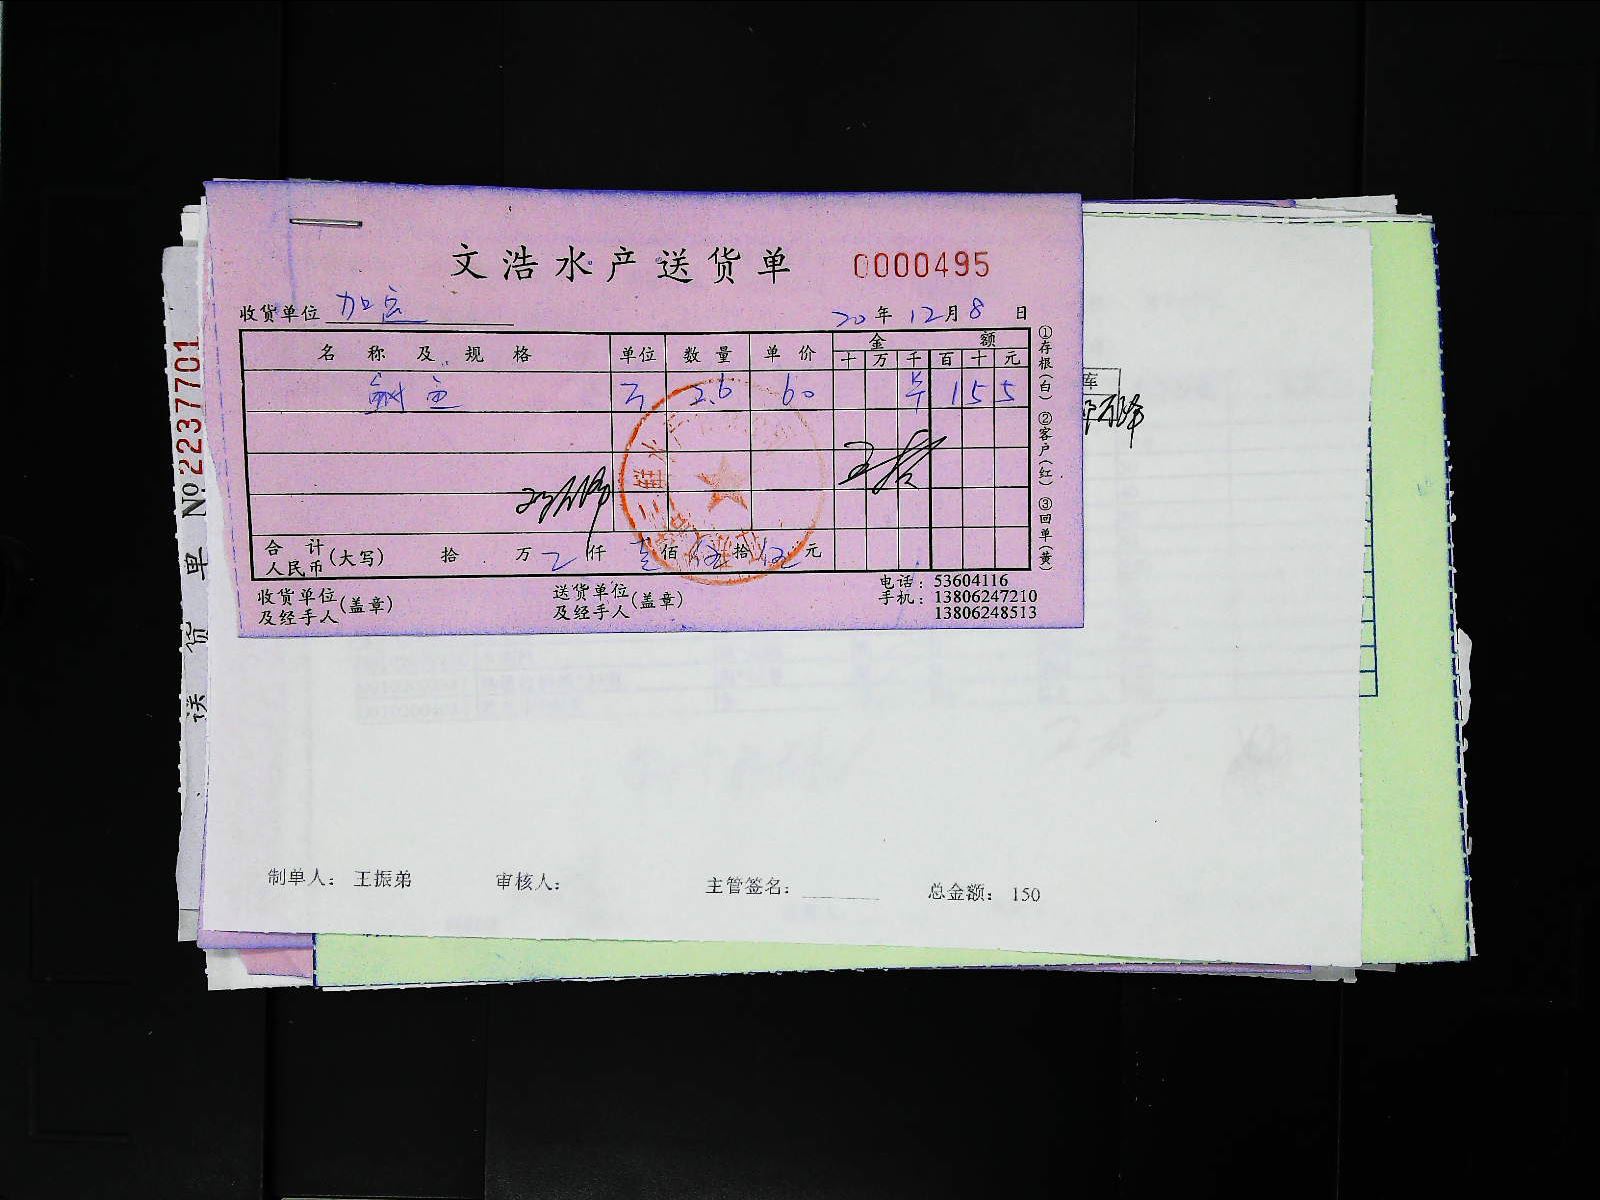 文浩水产送货单 0000495
收货单位 加 20年12月8日
名称及规格 单位 数量 单价 金额
十 万 千 百 十 元
2.6 60 1 5 5
合计人民币(大写) 拾 万 仟 壹佰伍拾伍元
收货单位及经手人(盖章) 送货单位及经手人(盖章) 电话：53604116
手机：13806247210
13806248513
①存根(白) ②客户(红) ③回单(黄)
送货单 №2237701
库
制单人： 王振弟 审核人： 主管签名： 总金额： 150